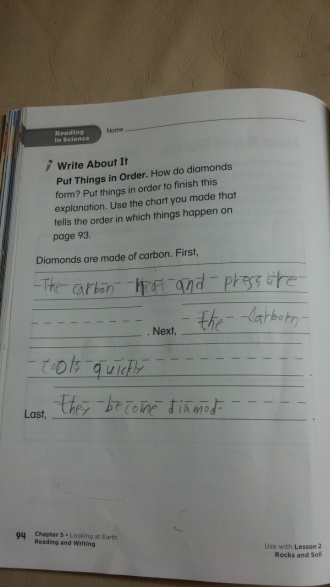 Reading
in Science
Name
Write About It
Put Things in Order. How do diamonds
form? Put things in order to finish this
explanation. Use the chart you made that
tells the order in which things happen on
page 93.
Diamonds are made of carbon. First,
The carbon heat and pressure
. Next, the Carborn
cools quickly
.
Last, they become diamod.
94 Chapter 5 • Looking at Earth
Reading and Writing
Use with Lesson 2
Rocks and Soil